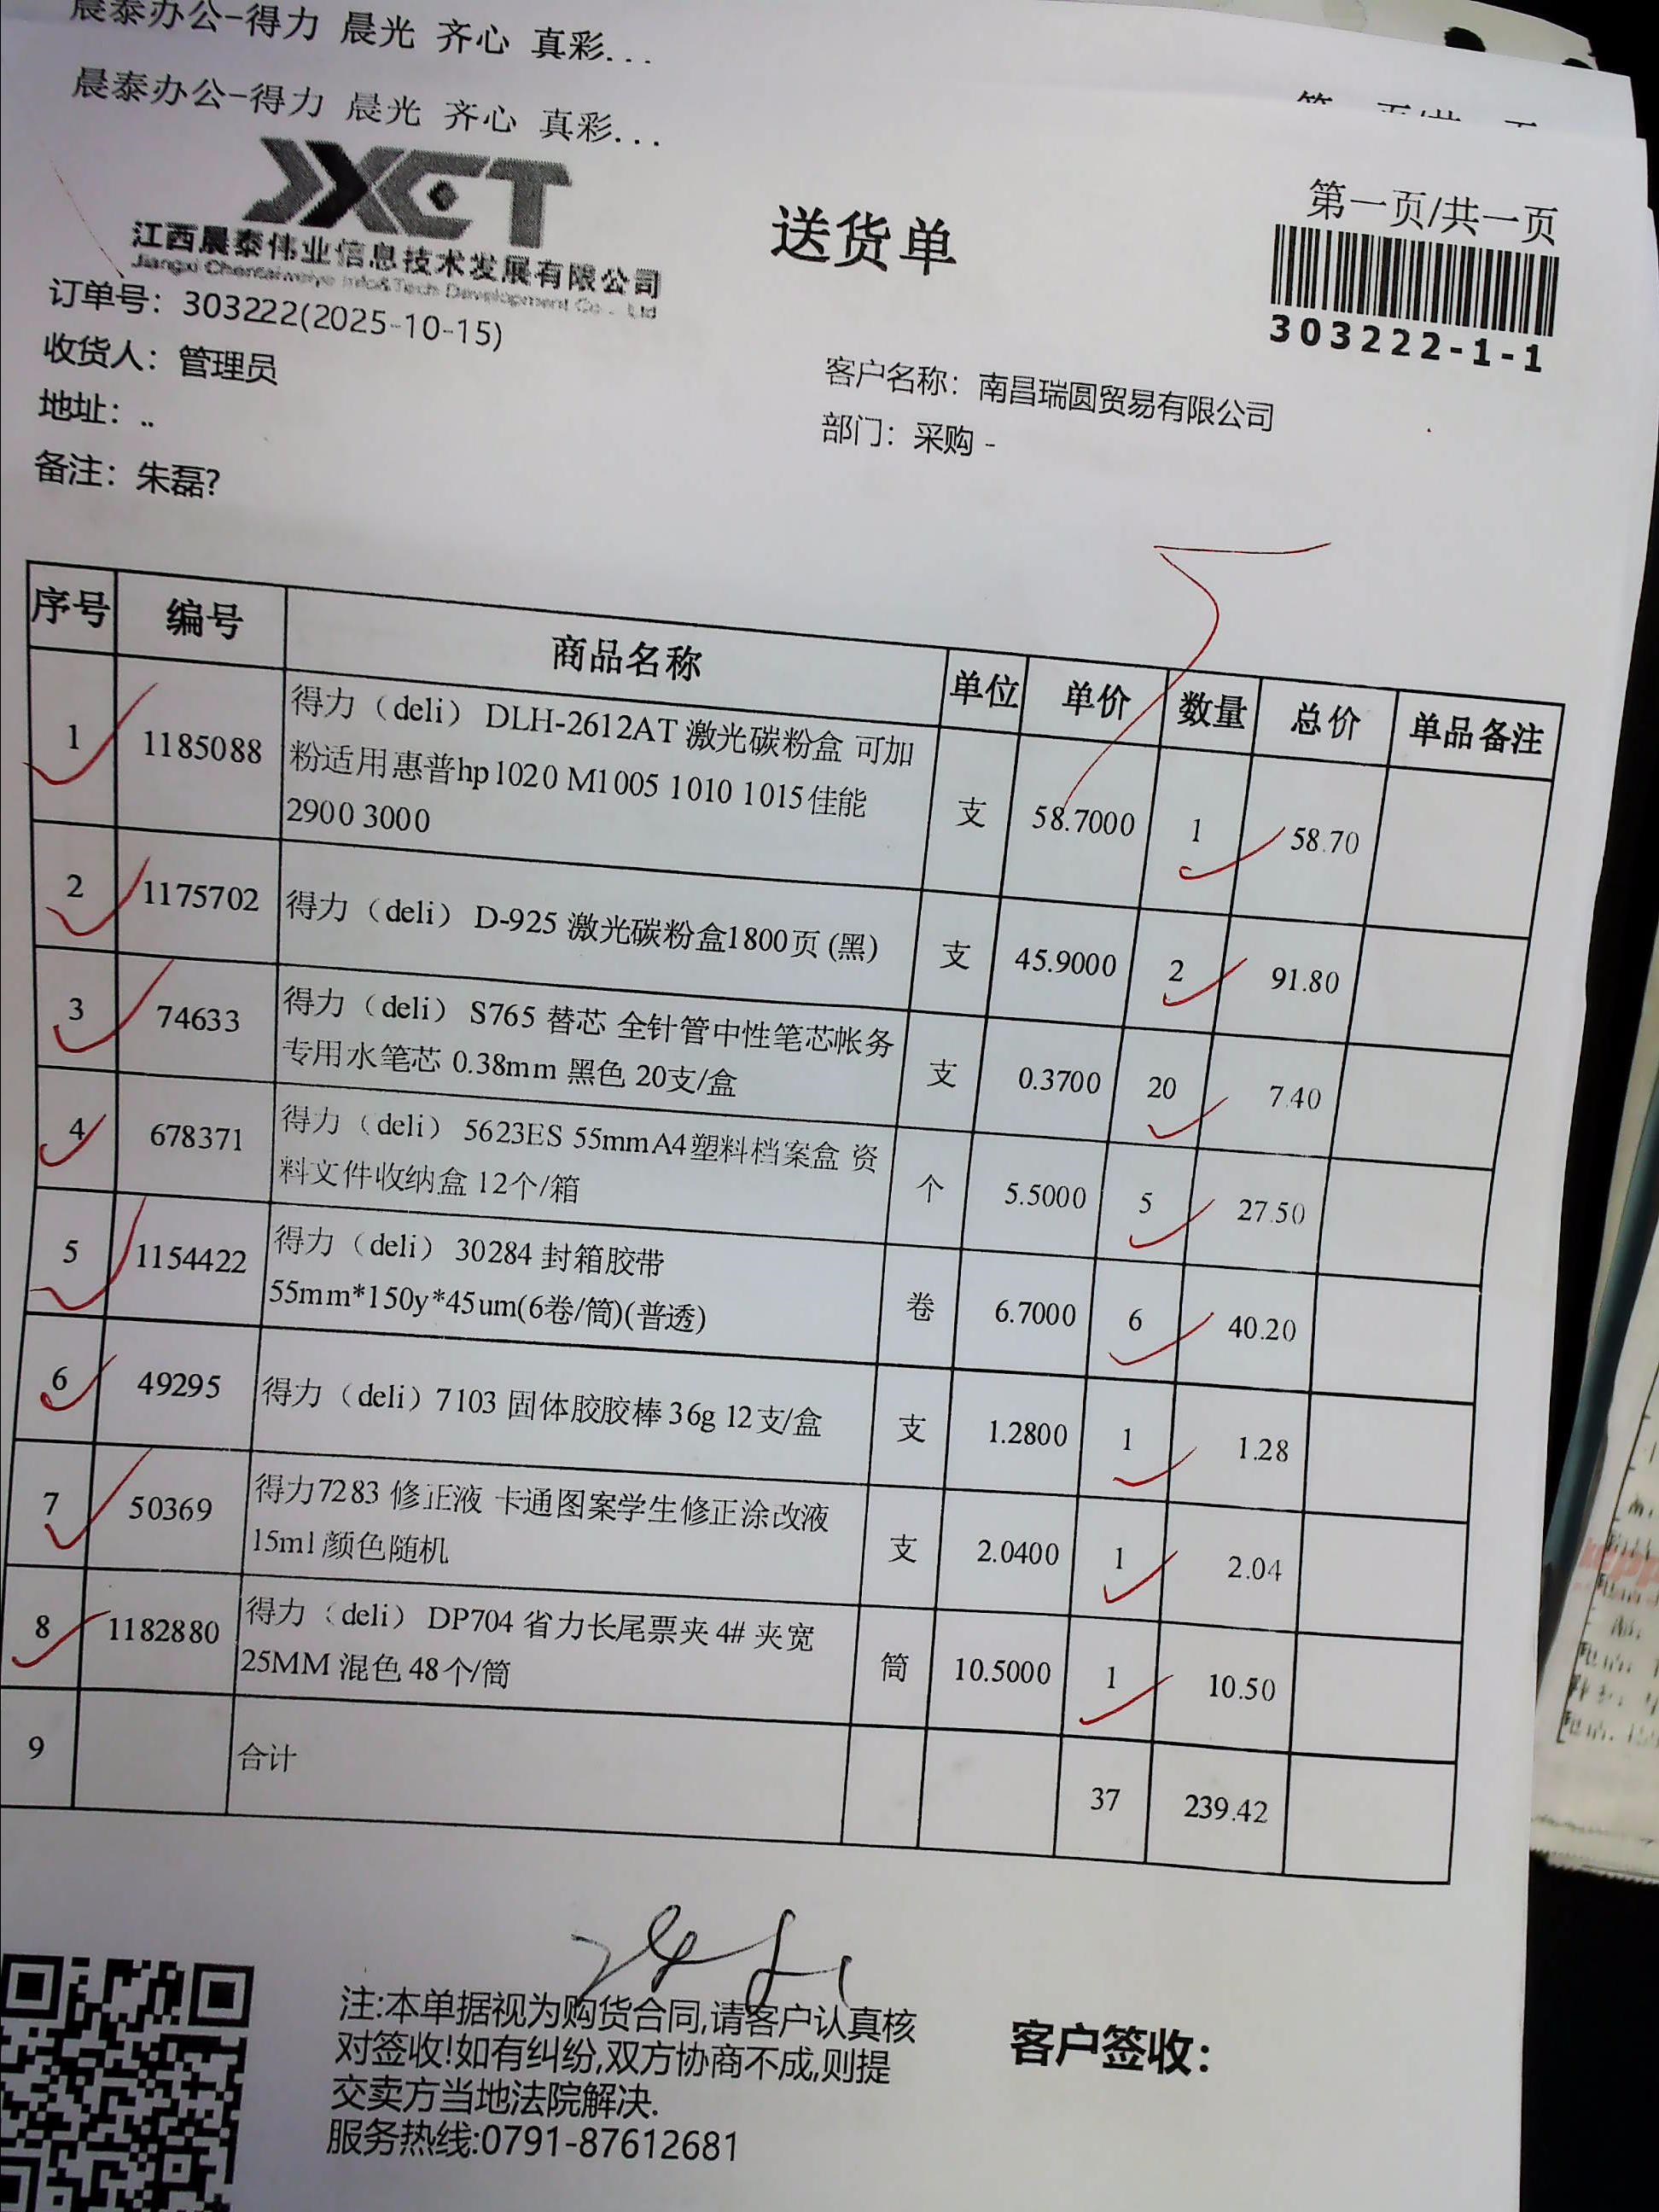 晨泰办公-得力 晨光 齐心 真彩...
晨泰办公-得力 晨光 齐心 真彩...
JXCT
江西晨泰伟业信息技术发展有限公司
Jiangxi Chentaiweiye Info&Tech Development Co., Ltd
送货单
第一页/共一页
303222-1-1
订单号：303222(2025-10-15)
收货人：管理员
客户名称：南昌瑞圆贸易有限公司
地址：..
部门：采购 -
备注：朱磊?
序号 编号 商品名称 单位 单价 数量 总价 单品备注
1 1185088 得力（deli） DLH-2612AT 激光碳粉盒 可加
粉适用惠普hp1020 M1005 1010 1015佳能
2900 3000 支 58.7000 1 58.70
2 1175702 得力（deli） D-925 激光碳粉盒1800页 (黑) 支 45.9000 2 91.80
3 74633 得力（deli） S765 替芯 全针管中性笔芯帐务
专用水笔芯 0.38mm 黑色 20支/盒 支 0.3700 20 7.40
4 678371 得力（deli） 5623ES 55mmA4塑料档案盒 资
料文件收纳盒 12个/箱 个 5.5000 5 27.50
5 1154422 得力（deli） 30284 封箱胶带
55mm*150y*45um(6卷/筒)(普透) 卷 6.7000 6 40.20
6 49295 得力（deli）7103 固体胶胶棒 36g 12支/盒 支 1.2800 1 1.28
7 50369 得力7283 修正液 卡通图案学生修正涂改液
15ml 颜色随机 支 2.0400 1 2.04
8 1182880 得力（deli） DP704 省力长尾票夹 4# 夹宽
25MM 混色 48个/筒 筒 10.5000 1 10.50
9 合计 37 239.42
注:本单据视为购货合同,请客户认真核
对签收!如有纠纷,双方协商不成,则提
交卖方当地法院解决.
服务热线:0791-87612681
客户签收：